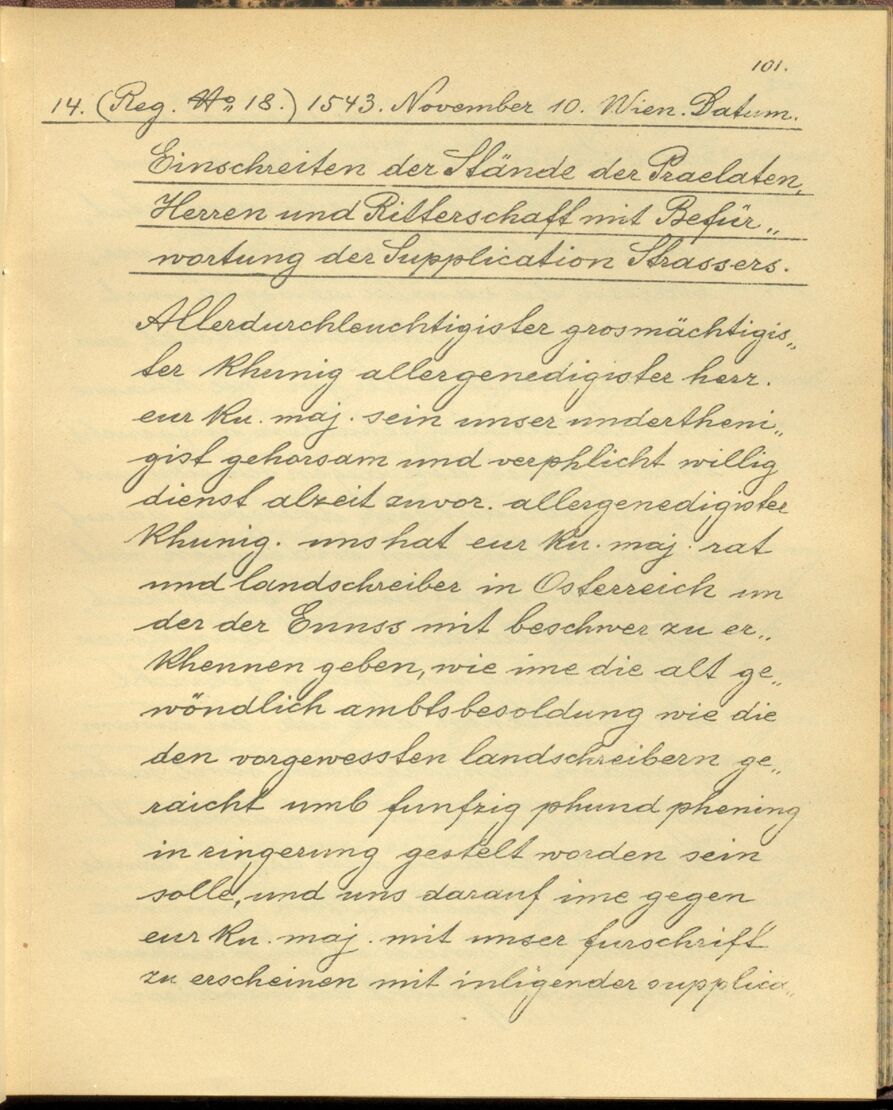 101.
14. (Reg. No 18.) 1543. November 10. Wien. Datum.
Einschreiten der Stände der Praelaten,
Herren und Ritterschaft mit Befür„
wortung der Supplication Strassers.
Allerdurchleuchtigister grosmächtigis„
ter Khunig allergenedigister herr.
eur ku. maj. sein unser undertheni„
gist gehorsam und verphlicht willig
dienst alzeit zuvor. allergenedigister
Khunig. uns hat eur ku. maj. rat
und landschreiber in Osterreich un
der der Ennss mit beschwer zu er„
khennen geben, wie ime die alt ge„
wöndlich ambtsbesoldung wie die
den vorgewessten landschreibern ge„
raicht umb funfzig phund phening
in ringerung gestelt worden sein
solle, und uns darauf ime gegen
eur ku. maj. mit unser furschrift
zu erscheinen mit inligender supplica„